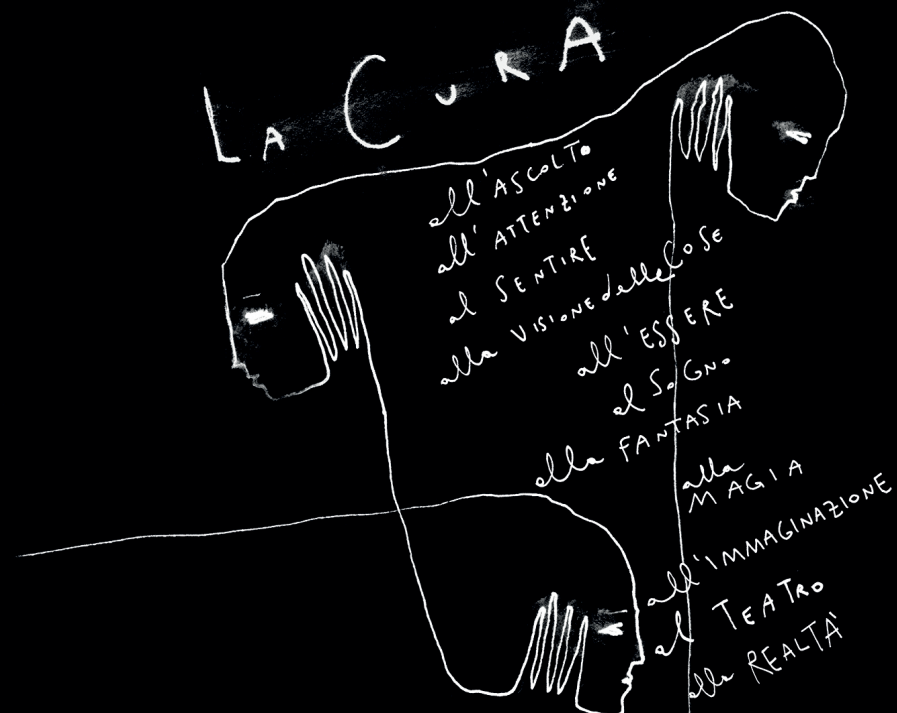 LA CURA
all'ASCOLTO
all'ATTENZIONE
al SENTIRE
alla VISIONE delle COSE
all'ESSERE
al SOGNO
alla FANTASIA
alla
MAGIA
all'IMMAGINAZIONE
al TEATRO
alla REALTÀ